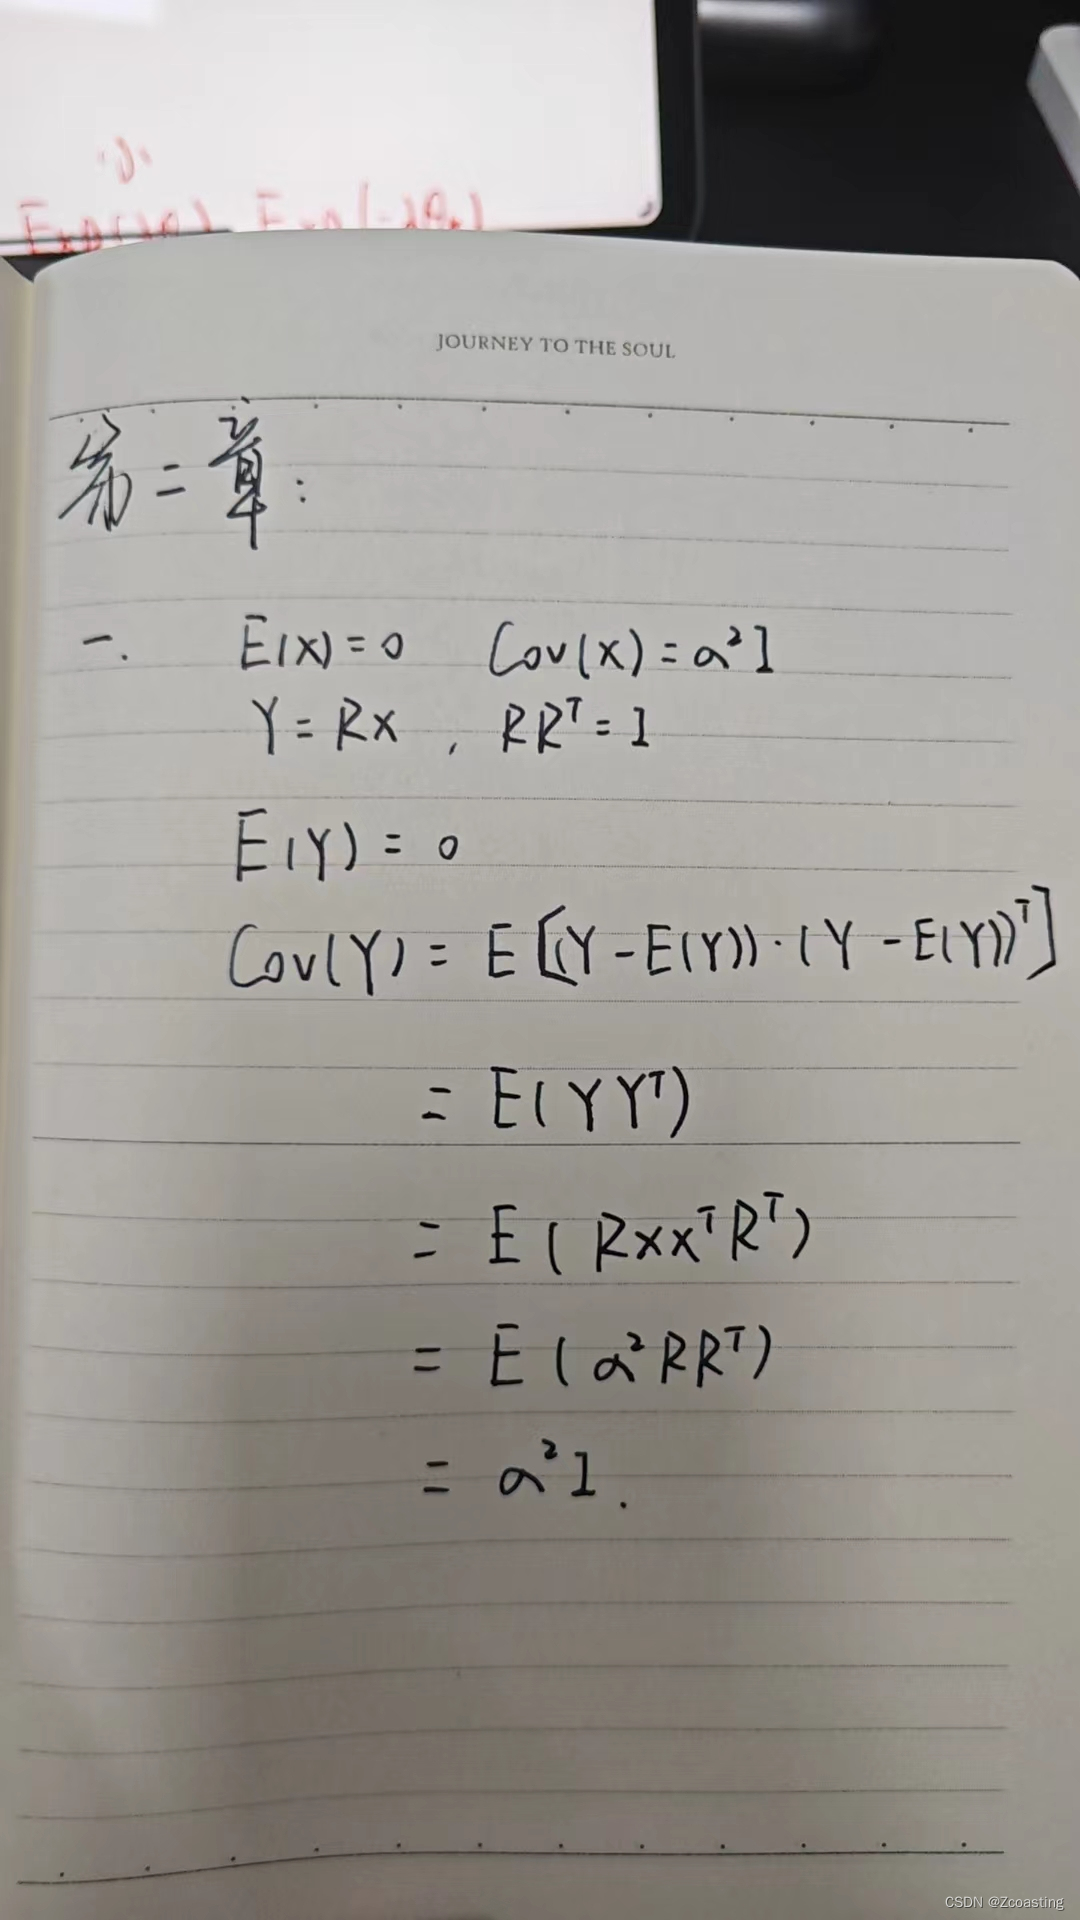 JOURNEY TO THE SOUL
第二章:
一. E(X)=0 Cov(X)=α²I
Y=RX , RRᵀ=I
E(Y)=0
Cov(Y)=E[(Y-E(Y))·(Y-E(Y))ᵀ]
=E(YYᵀ)
=E(RXXᵀRᵀ)
=E(α²RRᵀ)
=α²I.
CSDN @Zcoasting